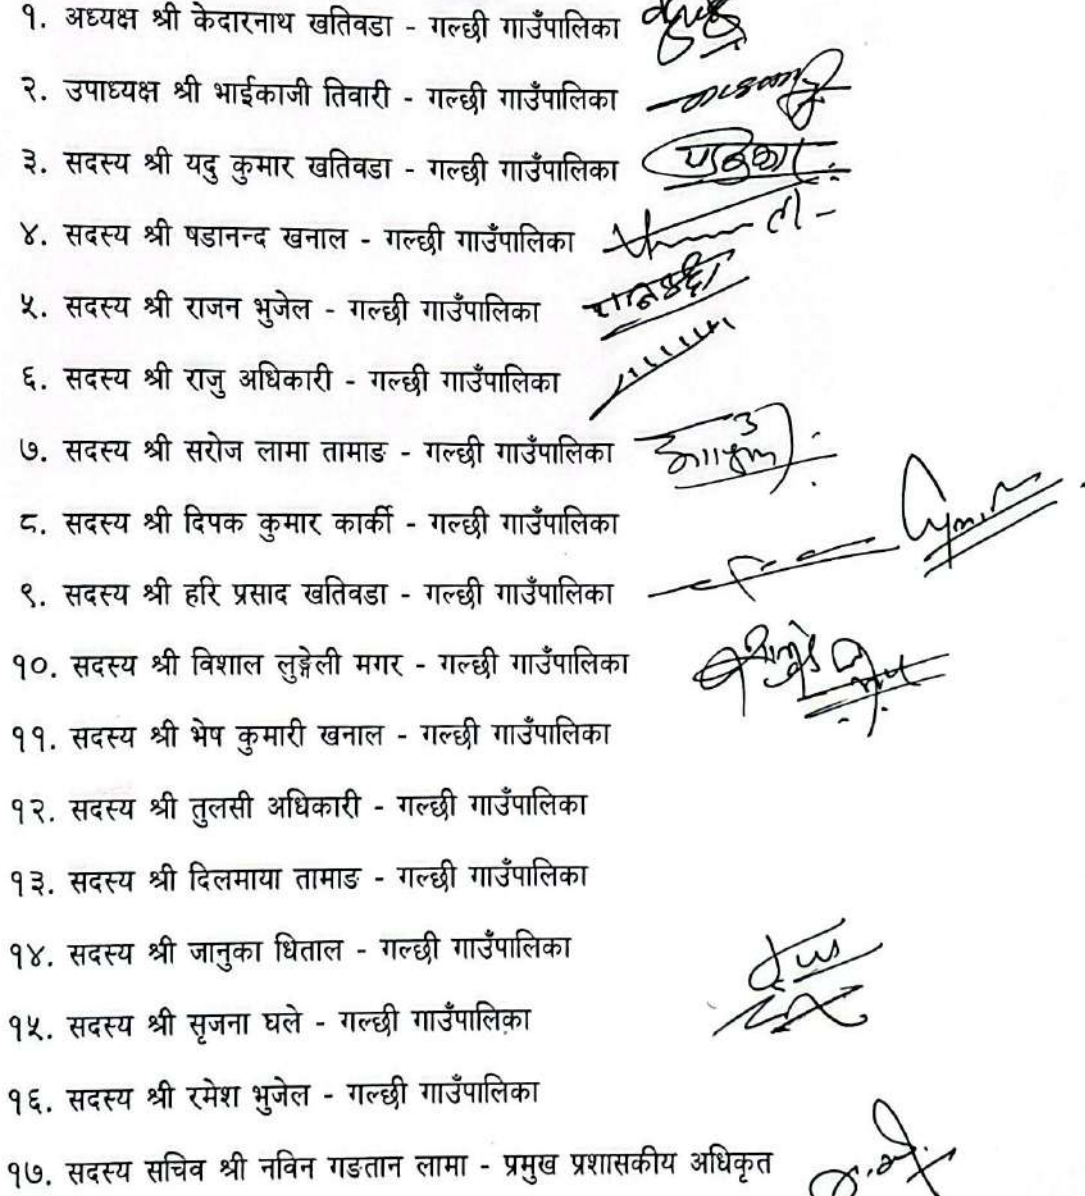 १. अध्यक्ष श्री केदारनाथ खतिवडा - गल्छी गाउँपालिका
२. उपाध्यक्ष श्री भाईकाजी तिवारी - गल्छी गाउँपालिका
३. सदस्य श्री यदु कुमार खतिवडा - गल्छी गाउँपालिका
४. सदस्य श्री षडानन्द खनाल - गल्छी गाउँपालिका
५. सदस्य श्री राजन भुजेल - गल्छी गाउँपालिका
६. सदस्य श्री राजु अधिकारी - गल्छी गाउँपालिका
७. सदस्य श्री सरोज लामा तामाङ - गल्छी गाउँपालिका
८. सदस्य श्री दिपक कुमार कार्की - गल्छी गाउँपालिका
९. सदस्य श्री हरि प्रसाद खतिवडा - गल्छी गाउँपालिका
१०. सदस्य श्री विशाल लुङ्गेली मगर - गल्छी गाउँपालिका
११. सदस्य श्री भेष कुमारी खनाल - गल्छी गाउँपालिका
१२. सदस्य श्री तुलसी अधिकारी - गल्छी गाउँपालिका
१३. सदस्य श्री दिलमाया तामाङ - गल्छी गाउँपालिका
१४. सदस्य श्री जानुका धिताल - गल्छी गाउँपालिका
१५. सदस्य श्री सृजना घले - गल्छी गाउँपालिका
१६. सदस्य श्री रमेश भुजेल - गल्छी गाउँपालिका
१७. सदस्य सचिव श्री नविन गङतान लामा - प्रमुख प्रशासकीय अधिकृत